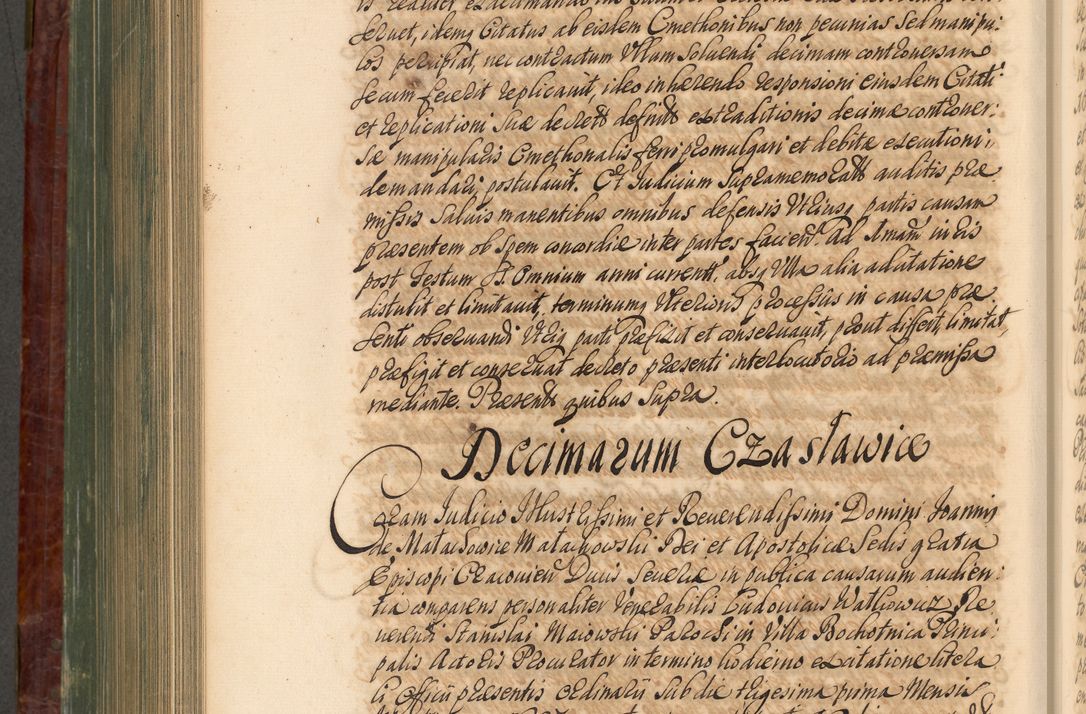 seruet, idemq Citatus ab eisdem Cmethonibus non pecunias sed manipu:
los percipiat, nec contractum Vllum soluendi decimam controuersam
secum fecerit replicauit, ideo inhærendo responsioni eiusdem Citati
et replicationi suæ decreto definito extraditionis decimæ controuer:
sæ manipularis Cmethonalis ferri promulgari et debitæ executioni
demandari postulauit. Et Iudicium supramemoratū auditis præ
missis saluis manentibus omnibus defensis Vtriusq partis causam
præsentem ob spem concordiæ inter partes faciend. ad Amam iuris
post Festum S. Omnium anni currentis absq Vlla alia aditatione
distulit et limitauit, terminumq Vlterioris processus in causa præ
senti obseruandi Vtriq parti præfixit et conseruauit, prout differt, limitat,
præfigit et conseruat decreto præsenti interlocutorio ad præmissa
mediante. Præsentibus quibus supra.
Decimarum Czasławice
Coram Iudicio Illustrissimi et Reuerendissimi Domini Ioannis
de Małachowice Małachowski Dei et Apostolicæ Sedis gratia
Episcopi Cracouien Ducis Seueriæ in publica causarum audien:
tia comparens personaliter Venerabilis Ludouicus Watłowicz Re
uerendi Stanislai Maiowski Parochi in Villa Bochotnica Princi
palis Actoris Procurator in termino hodierno ex citatione litera
li Officii præsentis ordinarii sub die trigesima prima Mensis